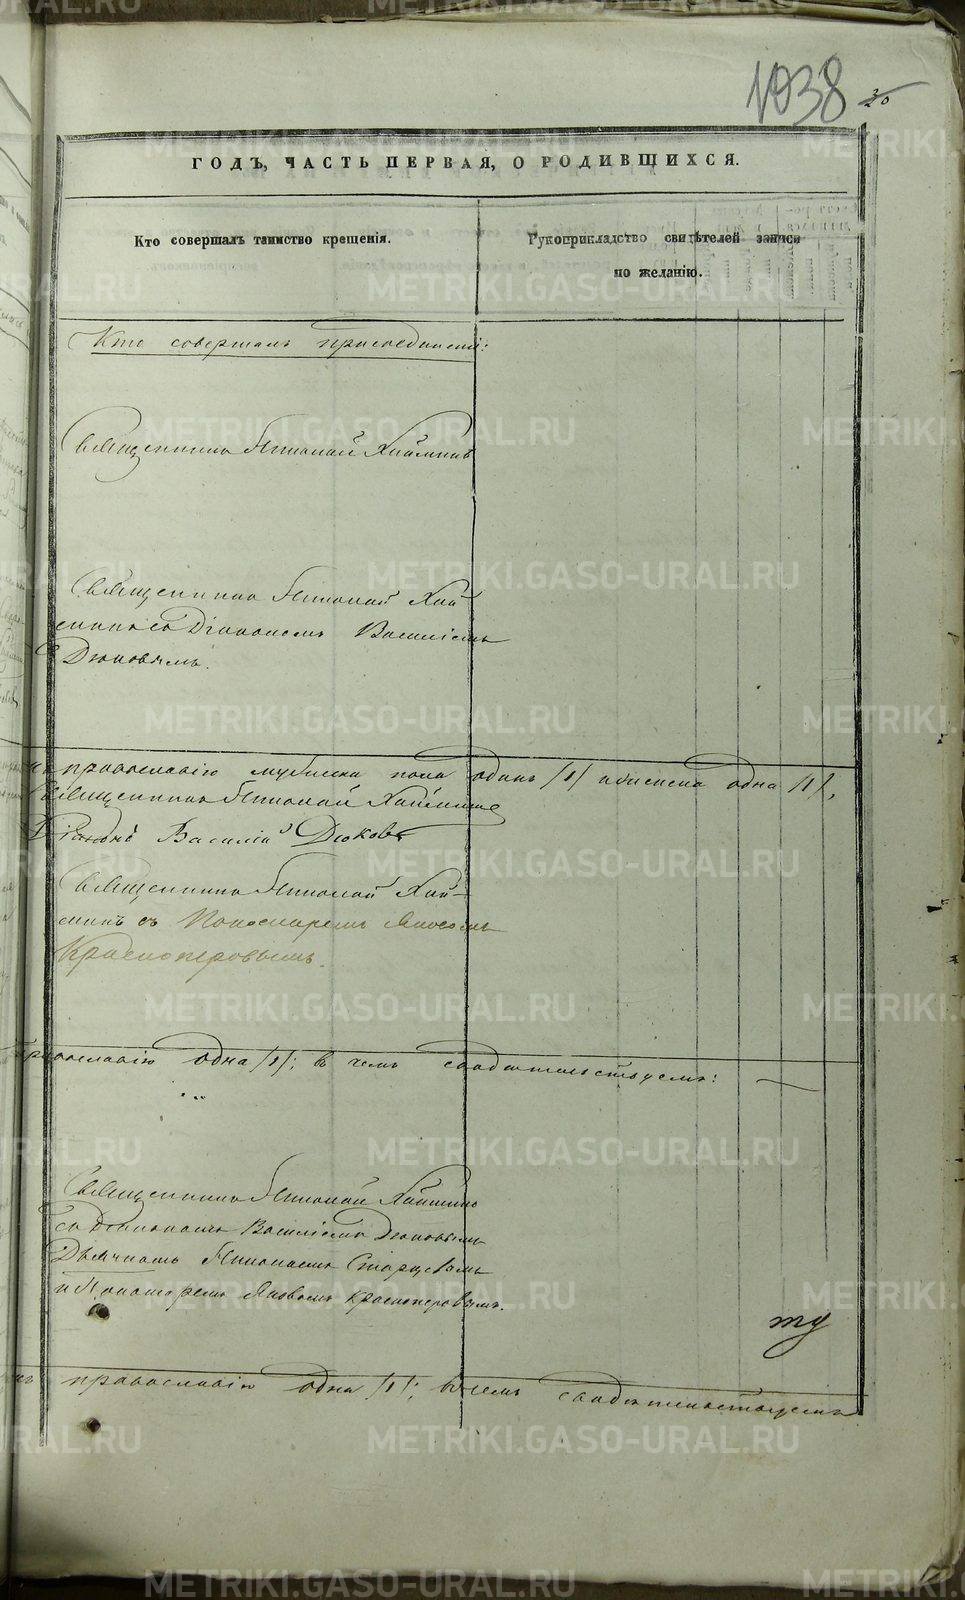 1038
30
ГОДЪ, ЧАСТЬ ПЕРВАЯ, О РОДИВШИХСЯ.
Кто совершалъ таинство крещенія.
Рукоприкладство свидѣтелей записи
по желанію.
Кто совершалъ присоединеніе:
Священникъ Николай Хайминъ
Священникъ Николай Хай
минъ съ Діакономъ Василіемъ
Дюковымъ.
православію мужеска пола одинъ /1/ и женска одна /1/,
Священникъ Николай Хайминъ
Діаконъ Василій Дюковъ
Священникъ Николай Хай-
минъ съ Пономаремъ Яковомъ
Красноперовымъ.
православію одна /1/; въ чемъ свидѣтельствуемъ:
Священникъ Николай Хайминъ
съ Діакономъ Василіемъ Дюковымъ
Дьячкомъ Николаемъ Старцевымъ
и Пономаремъ Яковомъ Красноперовымъ.
ту
православію одна /1/; въ чемъ свидѣтельствуемъ
METRIKI.GASO-URAL.RU